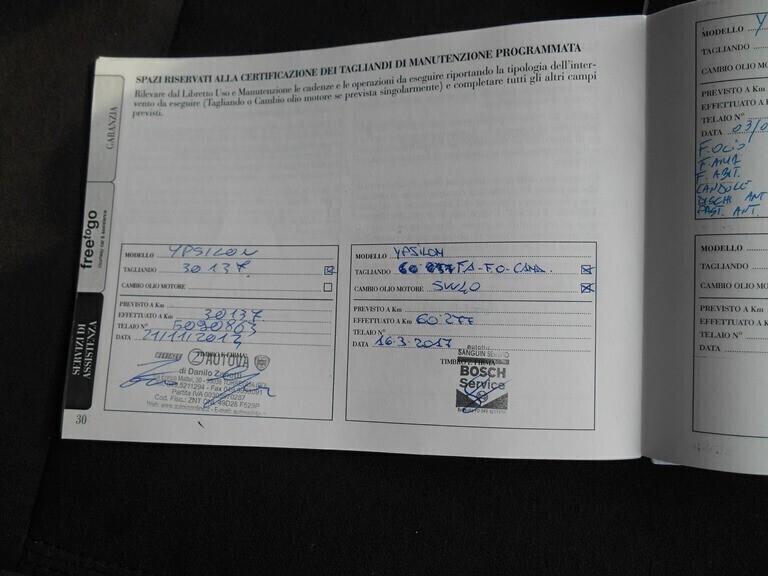 SPAZI RISERVATI ALLA CERTIFICAZIONE DEI TAGLIANDI DI MANUTENZIONE PROGRAMMATA
Rilevare dal Libretto Uso e Manutenzione le cadenze e le operazioni da eseguire riportando la tipologia dell'inter-
vento da eseguire (Tagliando o Cambio olio motore se prevista singolarmente) e completare tutti gli altri campi
previsti.
GARANZIA
freetogo
SERVIZI DI
ASSISTENZA
MODELLO YPSILON
TAGLIANDO 30137
CAMBIO OLIO MOTORE
PREVISTO A Km
EFFETTUATO A Km 30137
TELAIO N° 5090863
DATA 21/11/2013
TIMBRO E FIRMA
AUTOVA
di Danilo
Partita IVA
Cod. Fisc.: ZNT
30
MODELLO YPSILON
TAGLIANDO FA-FO-CAND.
CAMBIO OLIO MOTORE 5W40
PREVISTO A Km
EFFETTUATO A Km 60.277
TELAIO N°
DATA 16.3.2017
TIMBRO E FIRMA
SANGUIN
BOSCH
Service
MODELLO Y
TAGLIANDO
CAMBIO OLIO MOT
PREVISTO A Km
EFFETTUATO A K
TELAIO N°
DATA 03/0
F. OLIO
F. ARIA
F. ABIT.
CANDELE
DISCHI ANT
PAST. ANT.
MODELLO
TAGLIANDO
CAMBIO OLIO MO
PREVISTO A Km
EFFETTUATO A K
TELAIO N°
DATA